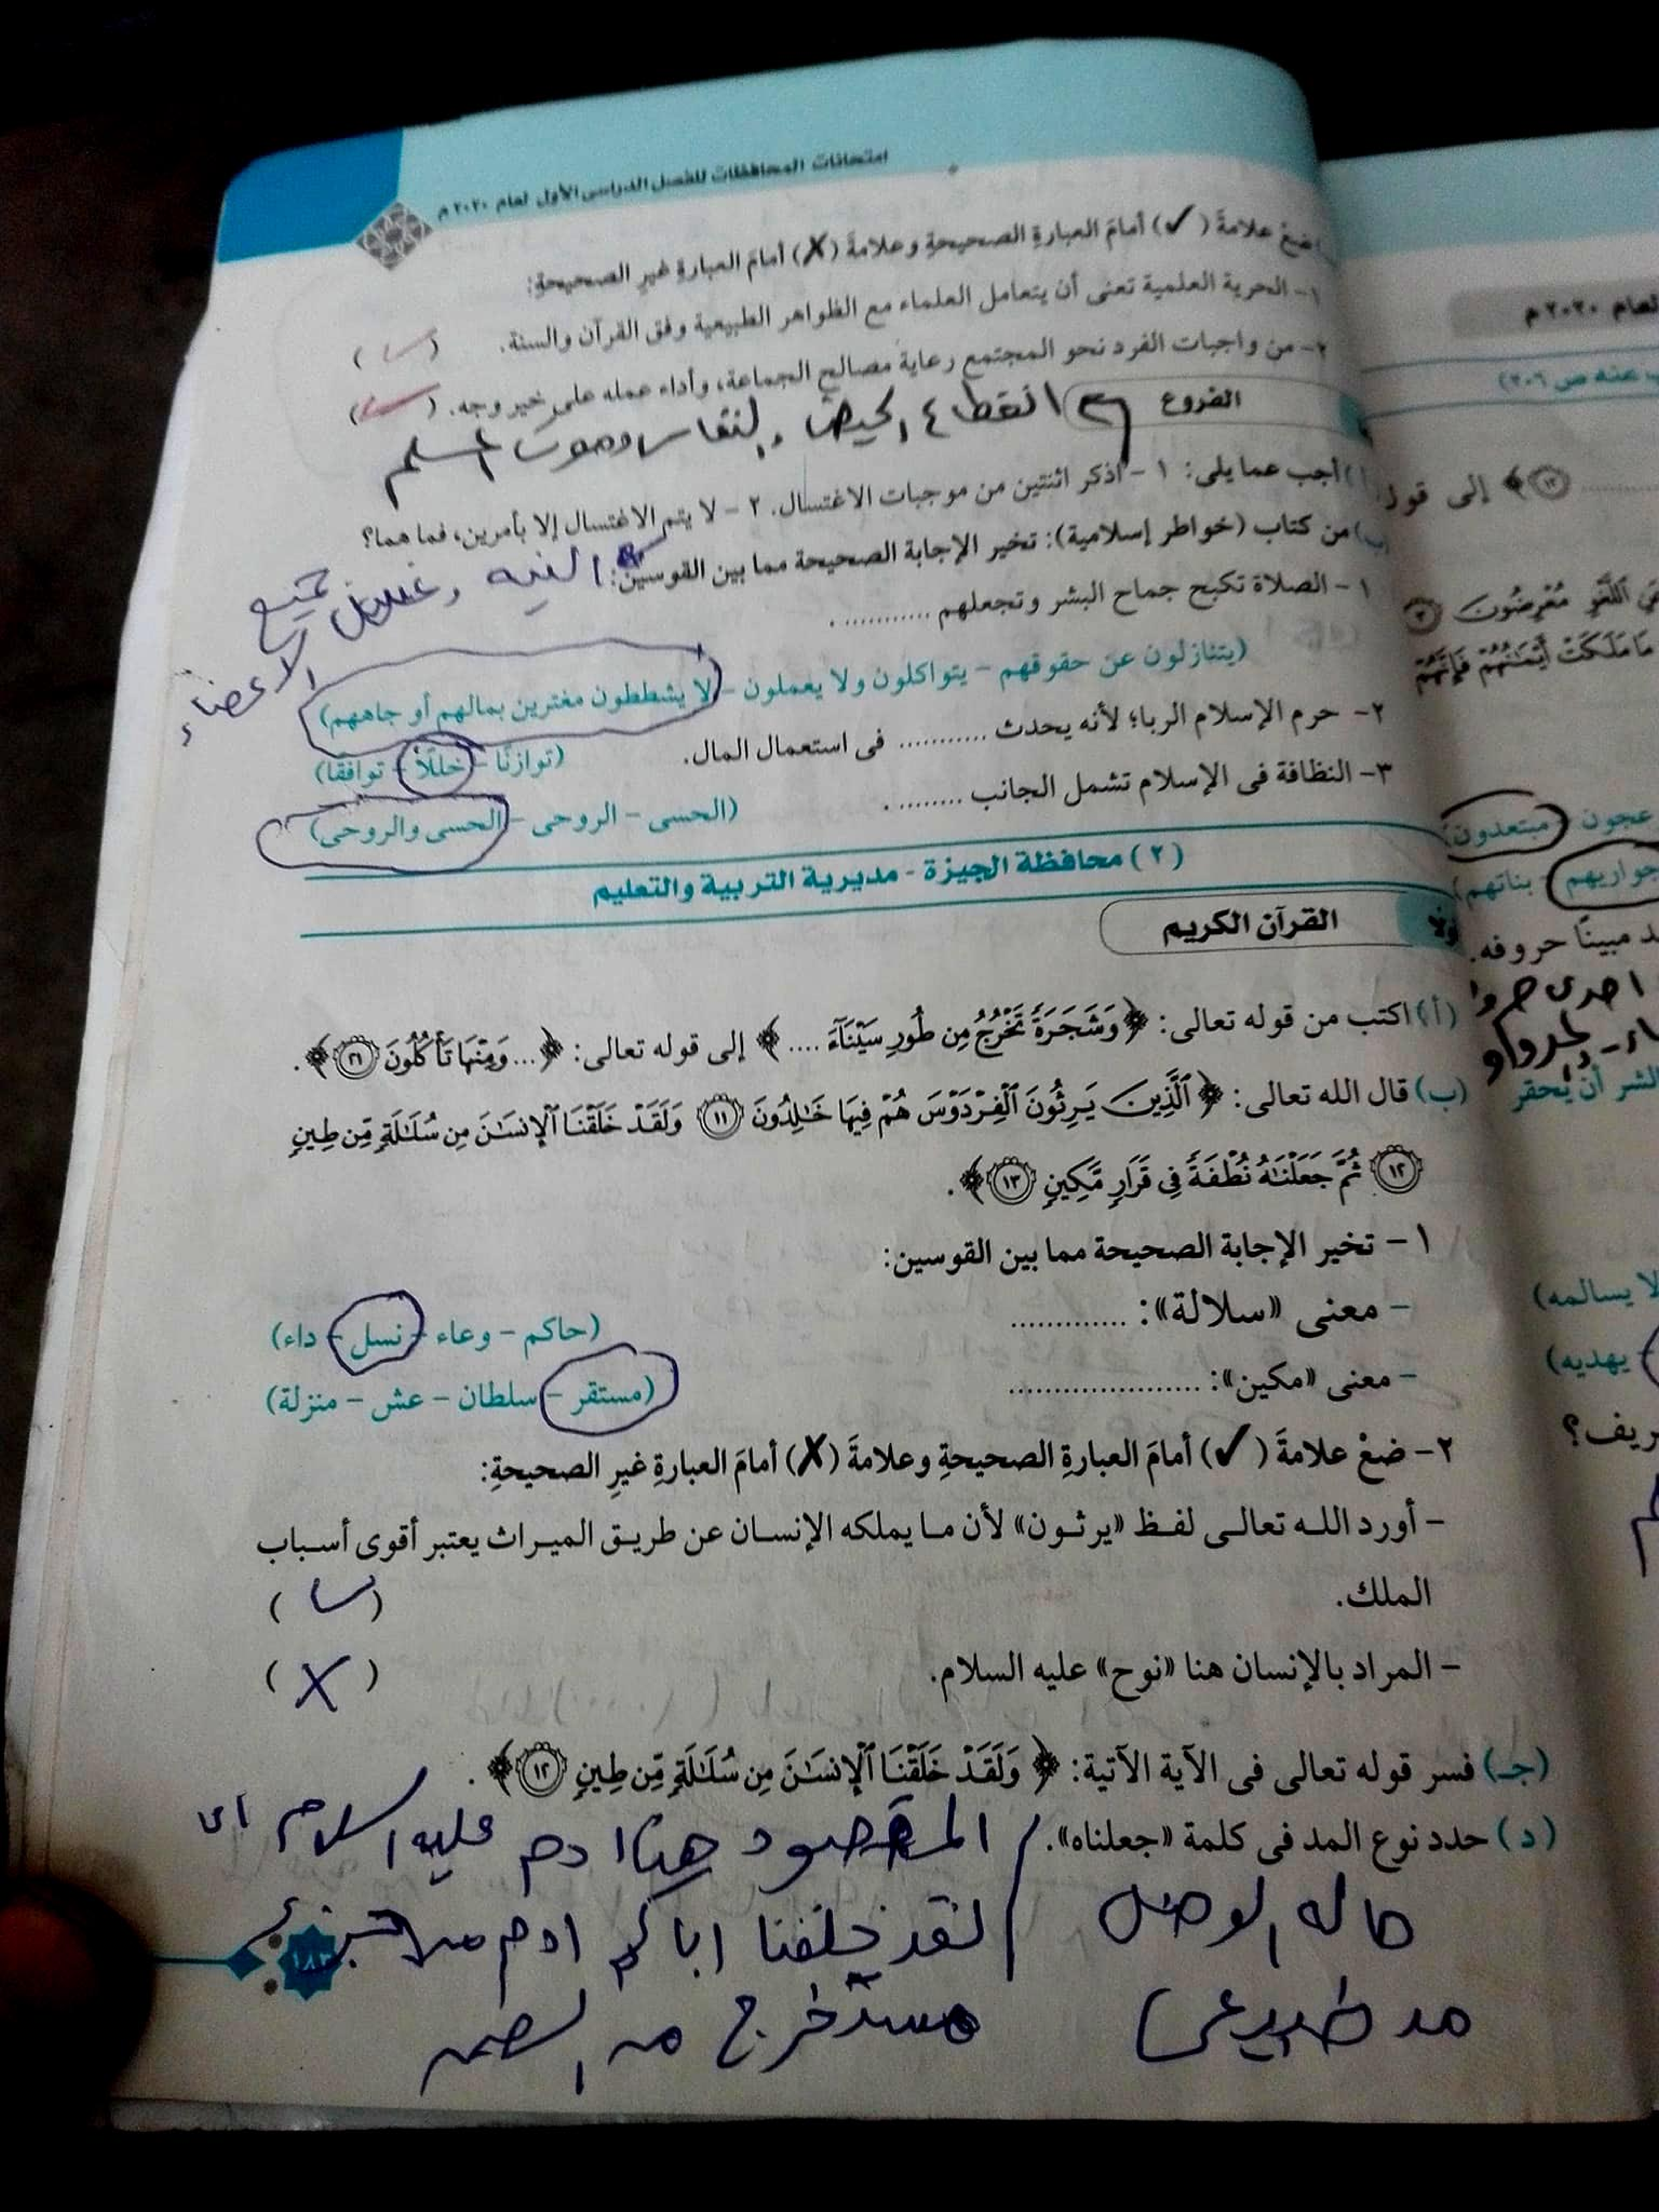 امتحانات المحافظات للفصل الدراسى الأول لعام ٢٠٢٠م
ضعْ علامةَ (✓) أمامَ العبارةِ الصحيحةِ وعلامةَ (✗) أمامَ العبارةِ غيرِ الصحيحةِ:
١- الحرية العلمية تعنى أن يتعامل العلماء مع الظواهر الطبيعية وفق القرآن والسنة. (✓)
٢- من واجبات الفرد نحو المجتمع رعاية مصالح الجماعة، وأداء عمله على خير وجه. (✓)
الفروع
انقطاع الحيض والنفاس وموت المسلم
أجب عما يلى: ١- اذكر اثنتين من موجبات الاغتسال. ٢- لا يتم الاغتسال إلا بأمرين، فما هما؟
النيه وغسل جميع الاعضاء
(ب) من كتاب (خواطر إسلامية): تخير الإجابة الصحيحة مما بين القوسين:
١- الصلاة تكبح جماح البشر وتجعلهم ............ .
(يتنازلون عن حقوقهم - يتواكلون ولا يعملون - لا يشططون مغترين بمالهم أو جاههم)
٢- حرم الإسلام الربا؛ لأنه يحدث ........... فى استعمال المال. (توازنًا - خللًا - توافقًا)
٣- النظافة فى الإسلام تشمل الجانب ......... . (الحسى - الروحى - الحسى والروحى)
(٢) محافظة الجيزة - مديرية التربية والتعليم
أولًا
القرآن الكريم
(أ) اكتب من قوله تعالى: ﴿وَشَجَرَةً تَخْرُجُ مِن طُورِ سَيْنَآءَ ....﴾ إلى قوله تعالى: ﴿... وَمِنْهَا تَأْكُلُونَ ٢١﴾.
(ب) قال الله تعالى: ﴿ٱلَّذِينَ يَرِثُونَ ٱلْفِرْدَوْسَ هُمْ فِيهَا خَٰلِدُونَ ١١ وَلَقَدْ خَلَقْنَا ٱلْإِنسَٰنَ مِن سُلَٰلَةٍ مِّن طِينٍ
١٢ ثُمَّ جَعَلْنَٰهُ نُطْفَةً فِى قَرَارٍ مَّكِينٍ ١٣﴾.
١- تخير الإجابة الصحيحة مما بين القوسين:
- معنى «سلالة»: ............. (حاكم - وعاء - نسل - داء)
- معنى «مكين»: ...................... (مستقر - سلطان - عش - منزلة)
٢- ضعْ علامةَ (✓) أمامَ العبارةِ الصحيحةِ وعلامةَ (✗) أمامَ العبارةِ غيرِ الصحيحةِ:
- أورد الله تعالى لفظ «يرثون» لأن ما يملكه الإنسان عن طريق الميراث يعتبر أقوى أسباب
الملك. (✓)
- المراد بالإنسان هنا «نوح» عليه السلام. (✗)
(جـ) فسر قوله تعالى فى الآية الآتية: ﴿وَلَقَدْ خَلَقْنَا ٱلْإِنسَٰنَ مِن سُلَٰلَةٍ مِّن طِينٍ ١٢﴾.
(د) حدد نوع المد فى كلمة «جعلناه».
المقصود هنا ادم عليه السلام اى
لقد خلقنا اباكم ادم من
مستخرج من
حاله الوصل
مد طبيعى
١٨٣
لعام ٢٠٢٠م
عنه ص ٢٠٦)
١٢﴾ إلى قوله
ٱللَّغْوِ مُعْرِضُونَ ٣
مَا مَلَكَتْ أَيْمَٰنُهُمْ فَإِنَّهُمْ
مبتعدون)
جواريهم - بناتهم)
مبينًا حروفه.
احدى
الشر أن يحقر
لا يسالمه)
- يهديه)